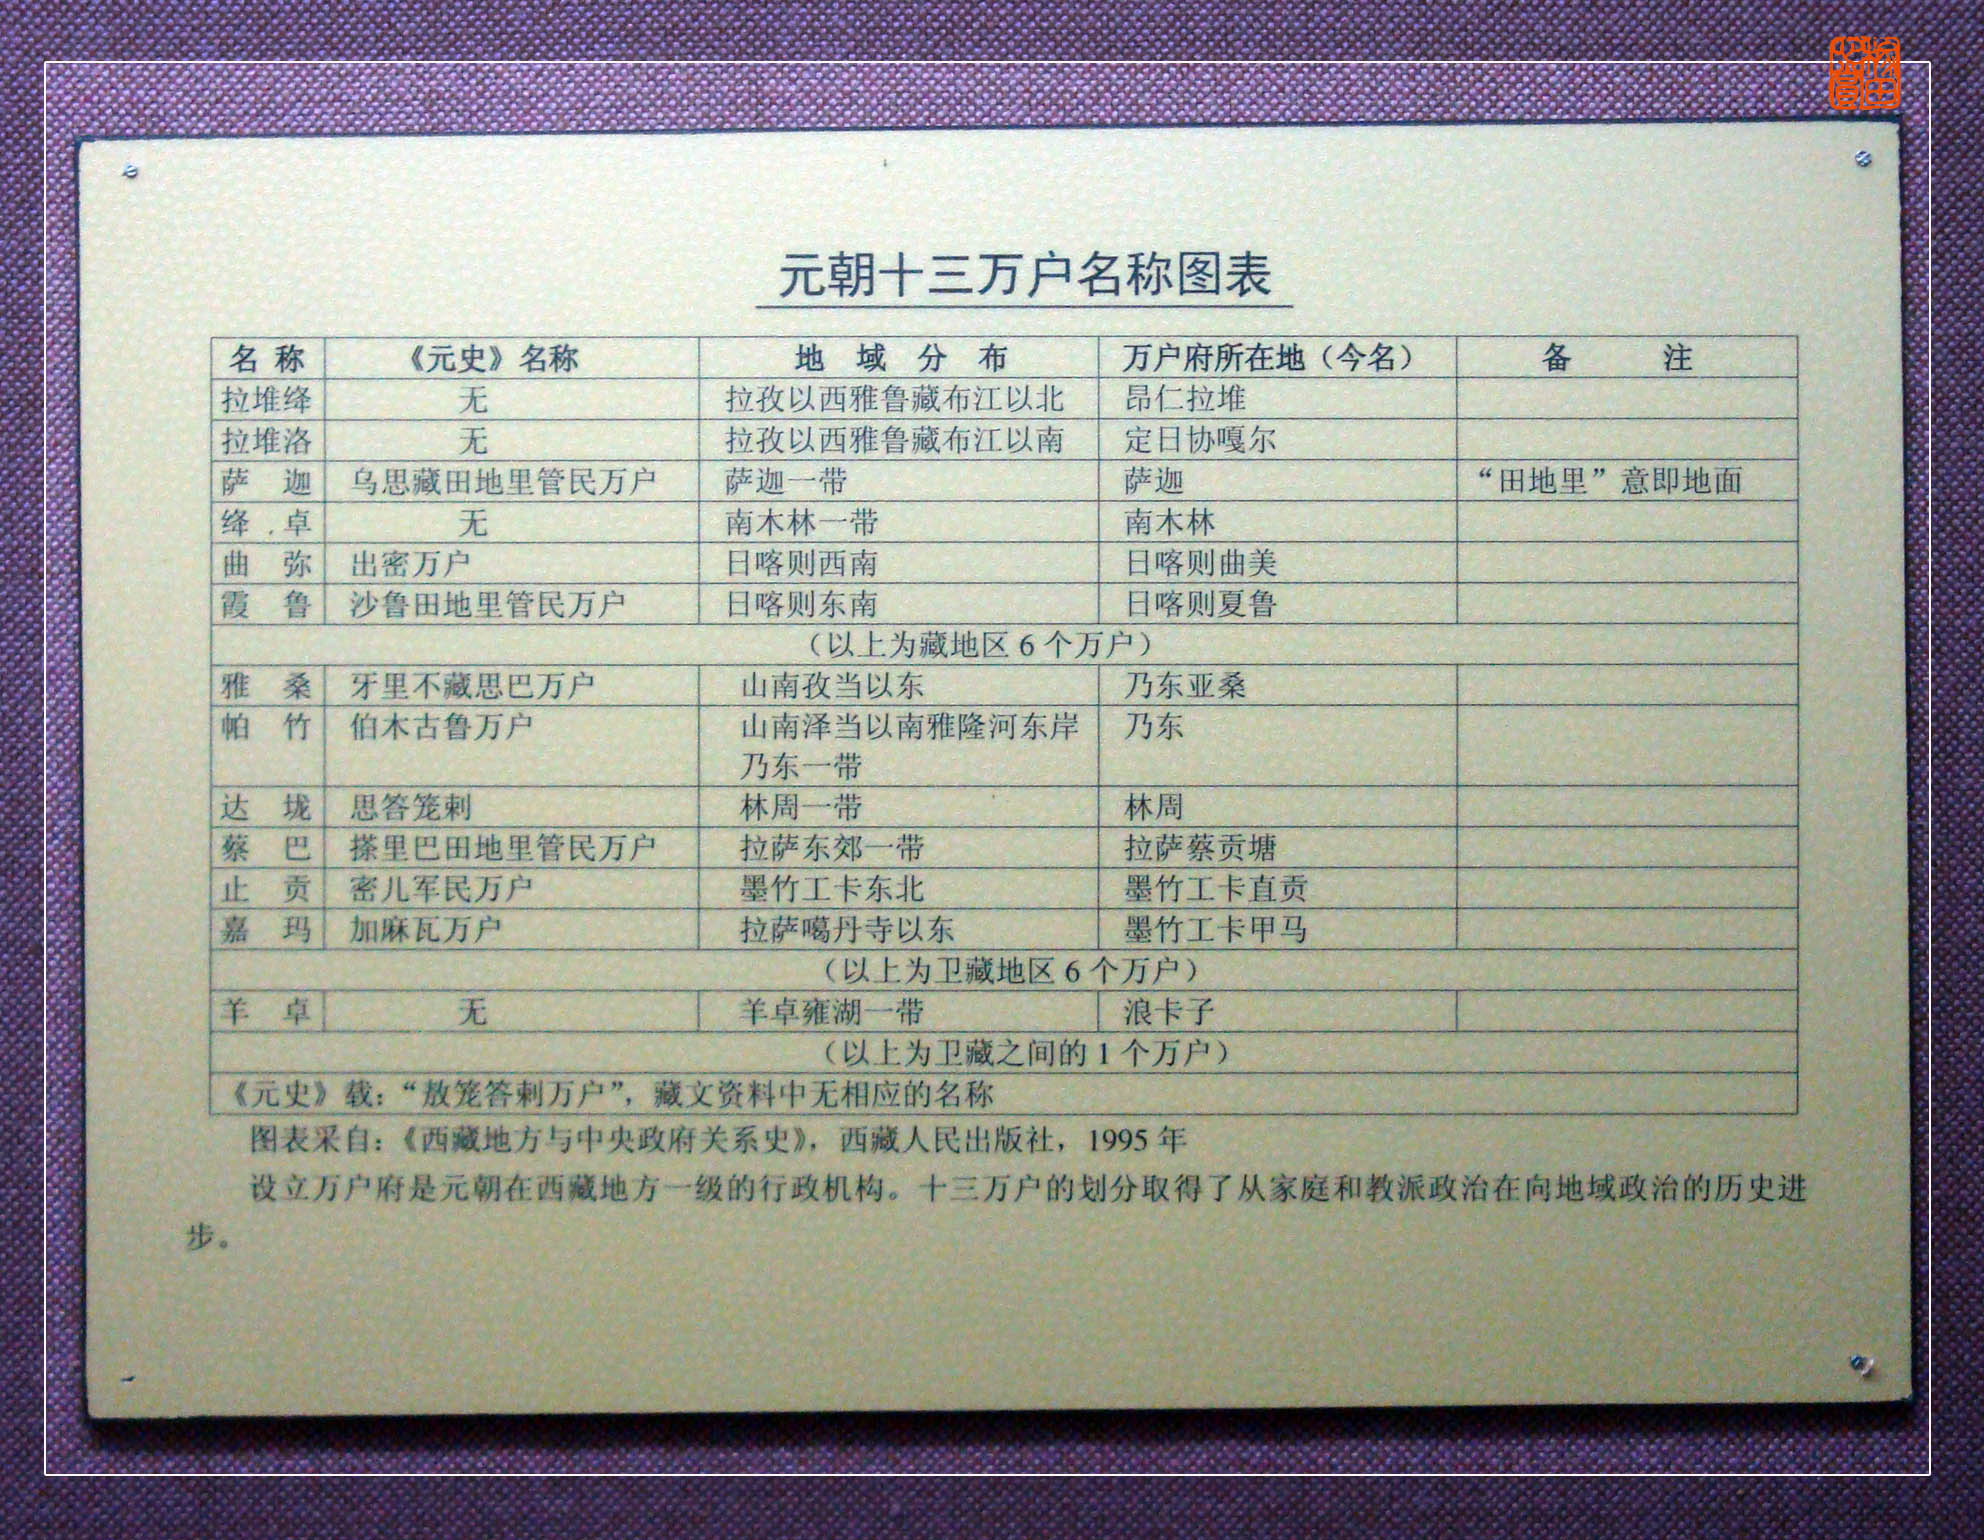 元朝十三万户名称图表
名称 《元史》名称 地域分布 万户府所在地（今名） 备注
拉堆绛 无 拉孜以西雅鲁藏布江以北 昂仁拉堆
拉堆洛 无 拉孜以西雅鲁藏布江以南 定日协嘎尔
萨迦 乌思藏田地里管民万户 萨迦一带 萨迦 “田地里”意即地面
绛卓 无 南木林一带 南木林
曲弥 出密万户 日喀则西南 日喀则曲美
霞鲁 沙鲁田地里管民万户 日喀则东南 日喀则夏鲁
（以上为藏地区 6 个万户）
雅桑 牙里不藏思巴万户 山南孜当以东 乃东亚桑
帕竹 伯木古鲁万户 山南泽当以南雅隆河东岸 乃东
乃东一带
达垅 思答笼剌 林周一带 林周
蔡巴 搽里巴田地里管民万户 拉萨东郊一带 拉萨蔡贡塘
止贡 密儿军民万户 墨竹工卡东北 墨竹工卡直贡
嘉玛 加麻瓦万户 拉萨噶丹寺以东 墨竹工卡甲马
（以上为卫藏地区 6 个万户）
羊卓 无 羊卓雍湖一带 浪卡子
（以上为卫藏之间的 1 个万户）
《元史》载：“敖笼答剌万户”，藏文资料中无相应的名称
图表采自：《西藏地方与中央政府关系史》，西藏人民出版社，1995 年
设立万户府是元朝在西藏地方一级的行政机构。十三万户的划分取得了从家庭和教派政治在向地域政治的历史进
步。